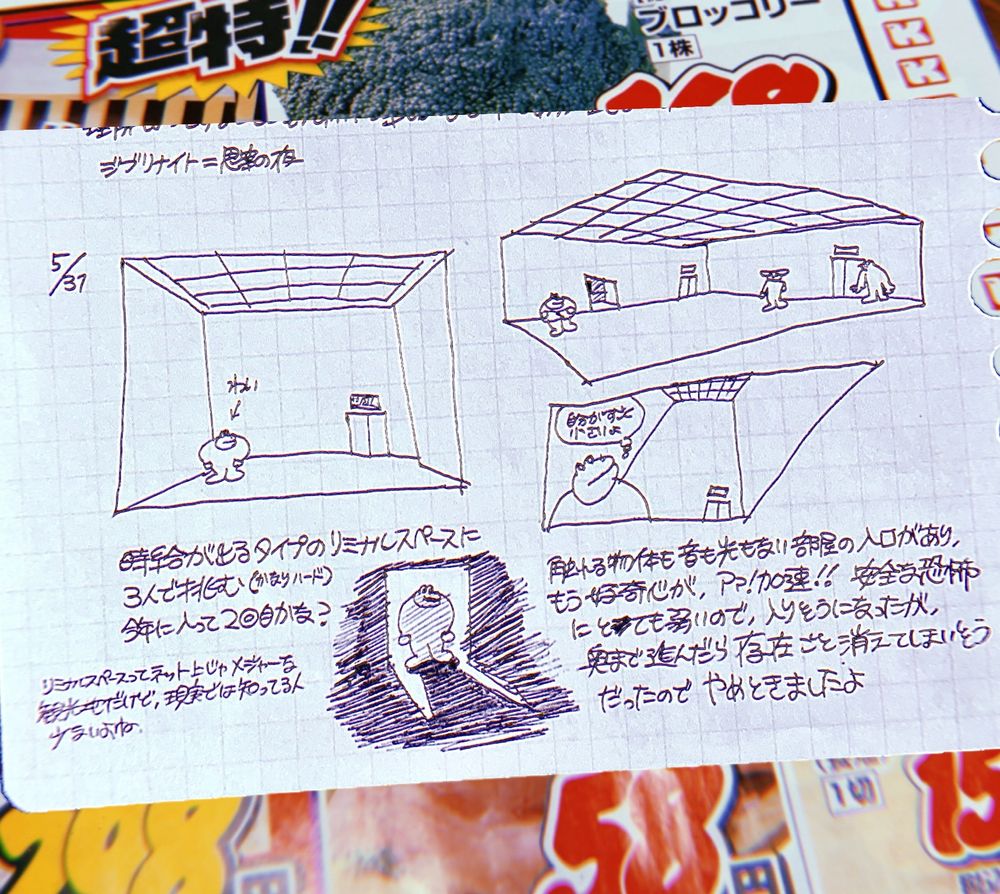 超特!!
ブロッコリー
1株
ジブリナイト=思案の夜
5/31
わい
自分がすっと
小さいよ
時年合が出るタイプのリミナルスペースに
3人で挑む(かなりハード)
今年に入って2回目かな?
リミナルスペースってネット上じゃメジャーな
観光地だけど,現実では知ってる人
少ないよね.
触れる物体も音も光もない部屋の入口があり,
もう好奇心が,アァ!加速!! 安全な恐怖
にとても弱いので,入りそうになったが,
奥まで進んだら存在ごと消えてしまいそう
だったのでやめときましたよ
1切
158
円
15